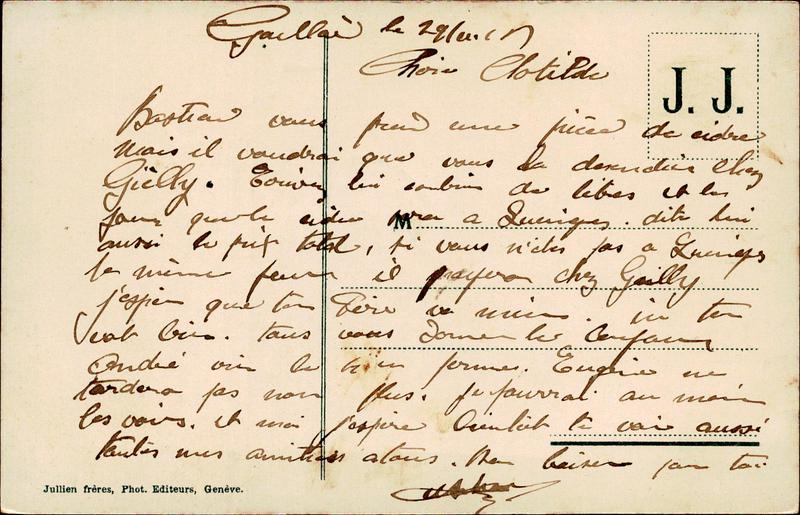 le 29
Chère Clotilde
J. J.
Bastian vous prend une pièce de cidre
mais il voudrai que vous la descendiez chez
Gielly. Ecrivez lui combien de litres et le
jour que le cidre sera a Lucinges. dite lui
M
aussi le prix total, si vous n'etes pas a Lucinges
le même jour il payera chez Gielly
j'espère que ton Père va mieux.
vat bien. tous vous donne le bonjour
André vin le Eugène ne
tardera pas non plus. Je pourrai au moin
les voir. et moi j'espère bientôt te voir aussi
toutes mes amitiés a tous. Bon baiser pour toi
Jullien frères, Phot. Editeurs, Genève.